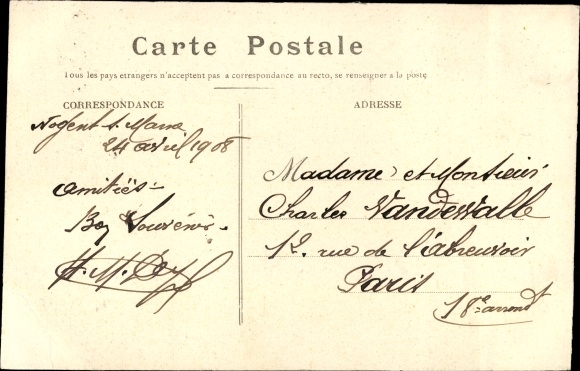 Carte Postale
Tous les pays etrangers n'acceptent pas la correspondance au recto, se renseigner à la poste
CORRESPONDANCE
Nogent s. Marne
24 avril 1908
amitiés -
Bon Souvenir -
ADRESSE
Madame et Monsieur
Charles Vandewalle
rue de l'abreuvoir
Paris
18e arrondt